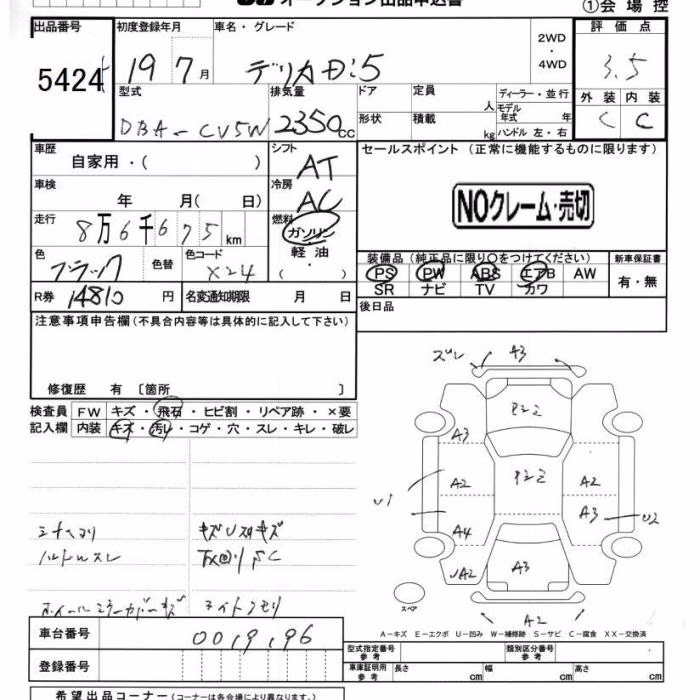 オークション出品申込書
①会場控
出品番号
5424
初度登録年月
19 7月
車名・グレード
デリカD:5
2WD
・
4WD
評価点
3.5
型式
DBA-CV5W
排気量
2350cc
ドア
定員
人
ディーラー・並行
形状
積載
kg
モデル年式
年
ハンドル 左・右
外装 内装
C C
車歴
自家用・( )
シフト
AT
セールスポイント (正常に機能するものに限ります)
NOクレーム・売切
車検
年 月( 日)
冷房
AC
走行
8万6千675km
燃料
ガソリン
・
軽油
・
( )
色
ブラック
色替
色コード
X24
装備品 (純正品に限り○をつけてください)
PS PW ABS エアB AW
SR ナビ TV カワ
新車保証書
有・無
R券 14810円
名変通知期限 月 日
後日品
注意事項申告欄 (不具合内容等は具体的に記入して下さい)
修復歴 有 〔箇所 〕
検査員
記入欄
FW キズ・飛石・ヒビ割・リペア跡・×要
内装 キズ・汚レ・コゲ・穴・スレ・キレ・破レ
ズレ A3
A3
A2 A2
U1
A3 U2
A4
A3
A2
スペア
ハンドルスレ
A-キズ E-エクボ U-凹み W-補修跡 S-サビ C-腐食 XX-交換済
車台番号
0019196
登録番号
型式指定番号
参考
類別区分番号
参考
車庫証明用
参考
長さ cm 幅 cm 高さ cm
希望出品コーナー (コーナーは各会場により異なります)